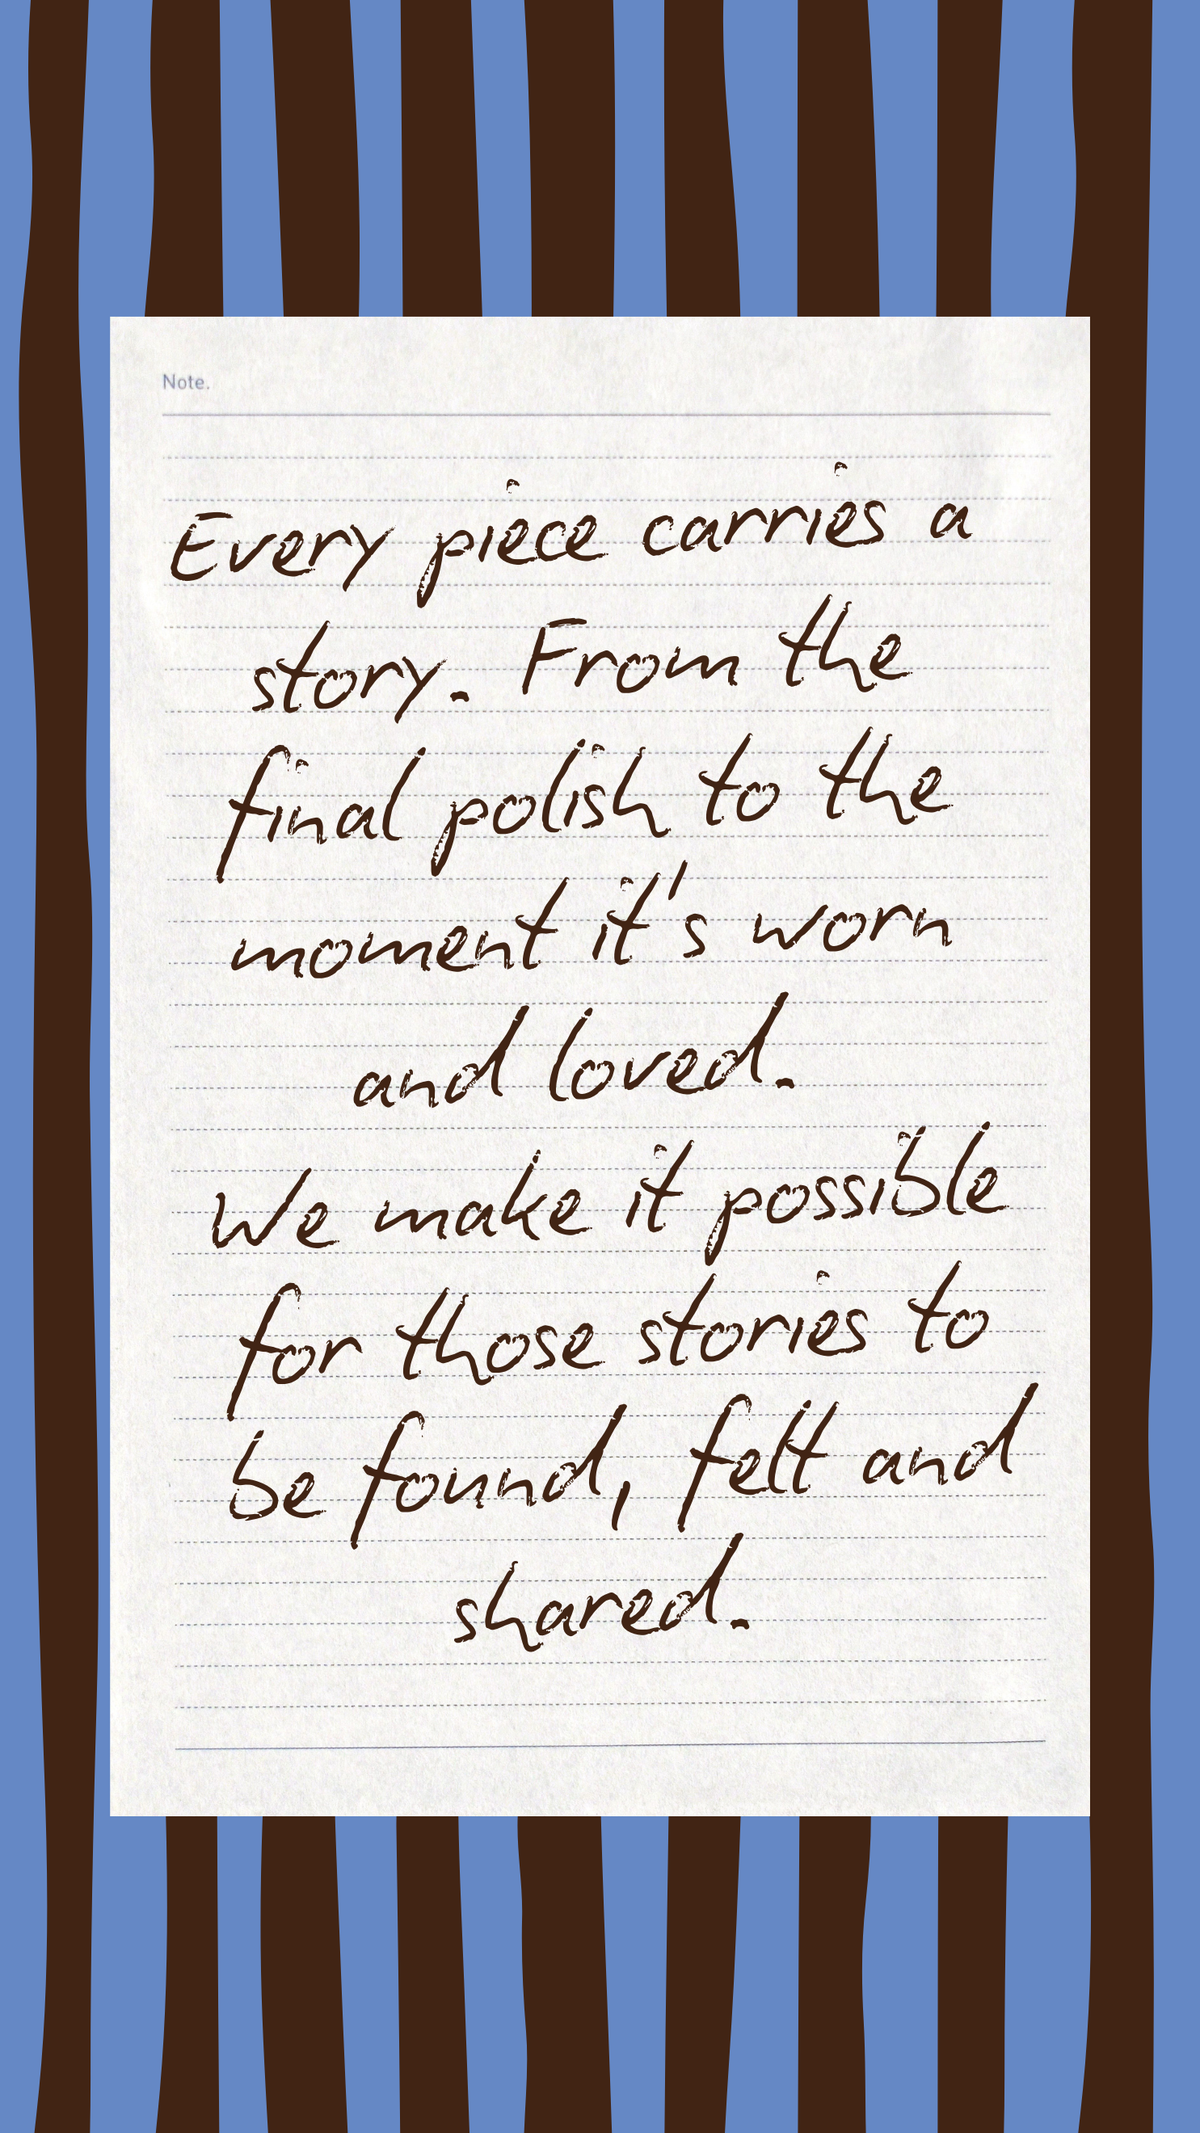 Note.
Every piece carries a
story. From the
final polish to the
moment it's worn
and loved.
We make it possible
for those stories to
be found, felt and
shared.